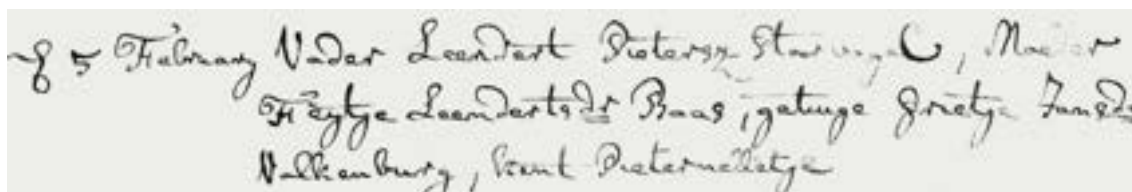 5 February Vader Leendert Pietersz , Moeder
Feytje Leendertsdr Baas , getuige Grietje Jansdr
Valkenburg , kint Pieternelletje